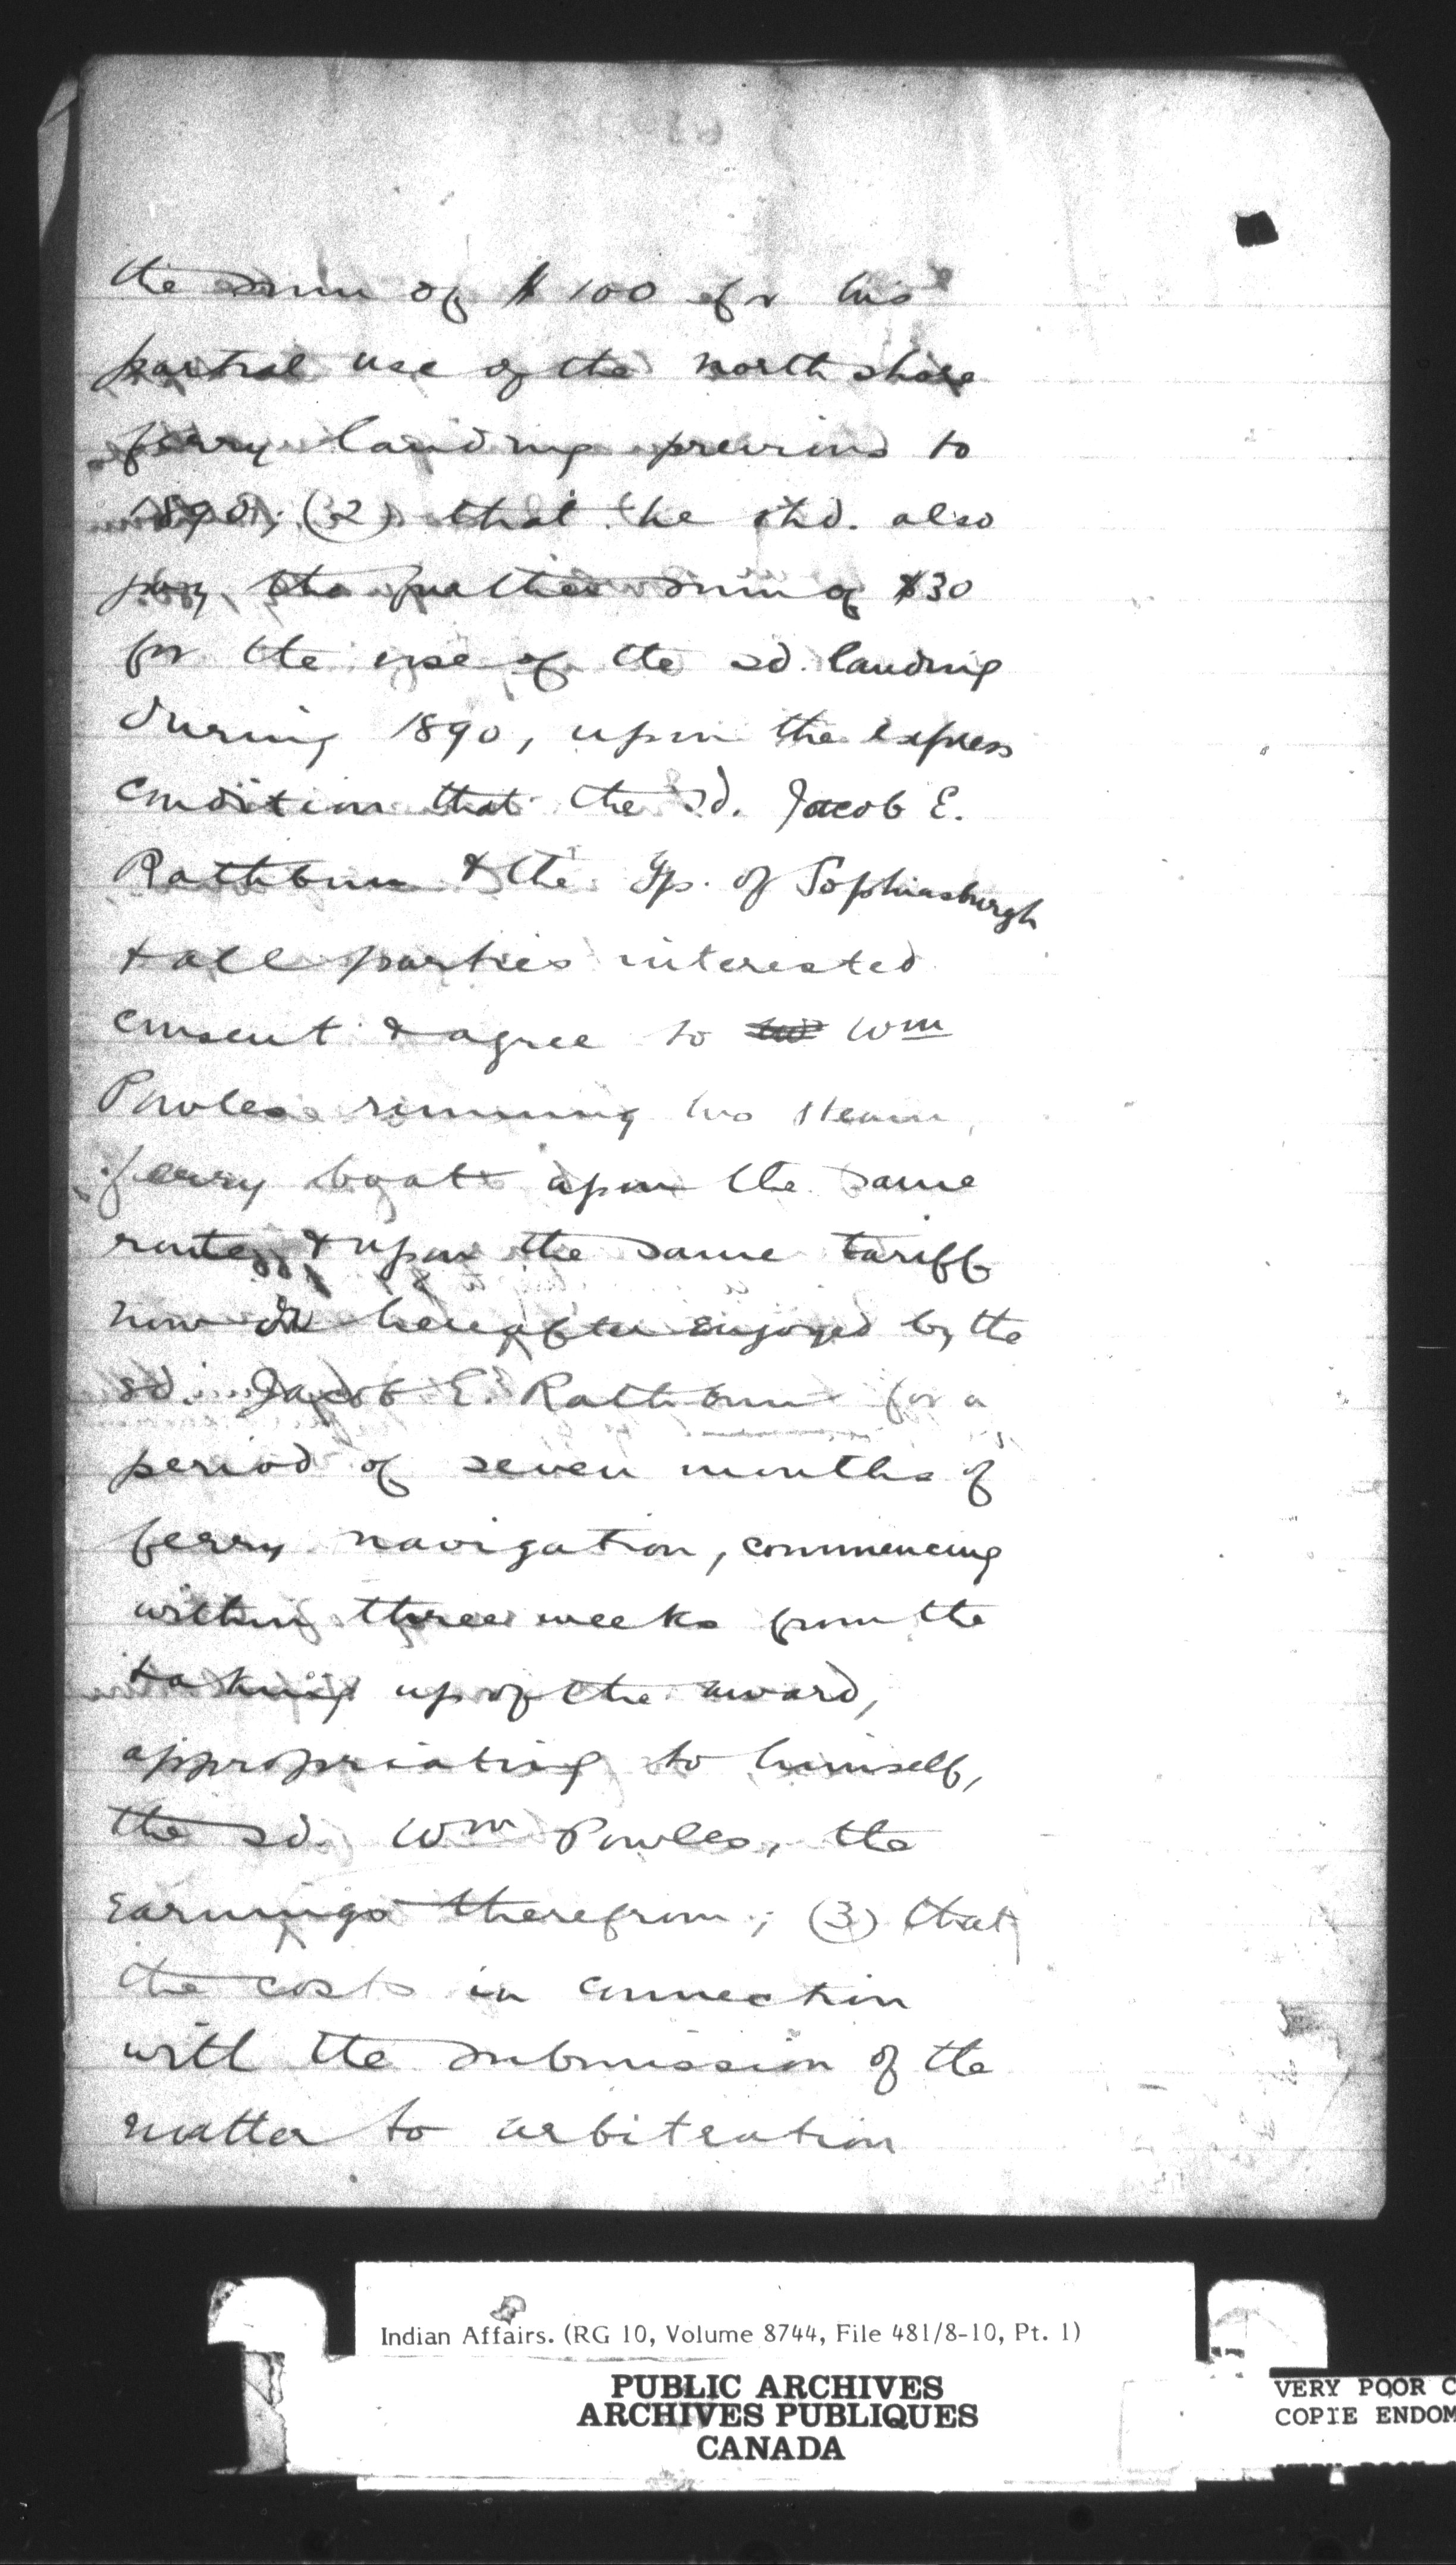 the sum of $100 for his
partial use of the north shore
ferry landing previous to
1890; (2) that he shd. also
pay the further sum of $30
for the use of the sd. landing
during 1890, upon the express
condition that the sd. Jacob E.
Rathbun & the Tp. of Sophiasburgh
& all parties interested
consent & agree to Wm
Powles running his steam
ferry boat upon the same
route, & upon the same tariff
now or hereafter enjoyed by the
sd. Jacob E. Rathbun for a
period of seven months of
ferry navigation, commencing
within three weeks from the
taking up of the award,
appropriating to himself,
the sd. Wm Powles, the
earnings therefrom; (3) that
the costs in connection
with the submission of the
matter to arbitration
Indian Affairs. (RG 10, Volume 8744, File 481/8-10, Pt. 1)
PUBLIC ARCHIVES
ARCHIVES PUBLIQUES
CANADA
VERY POOR C
COPIE ENDOM